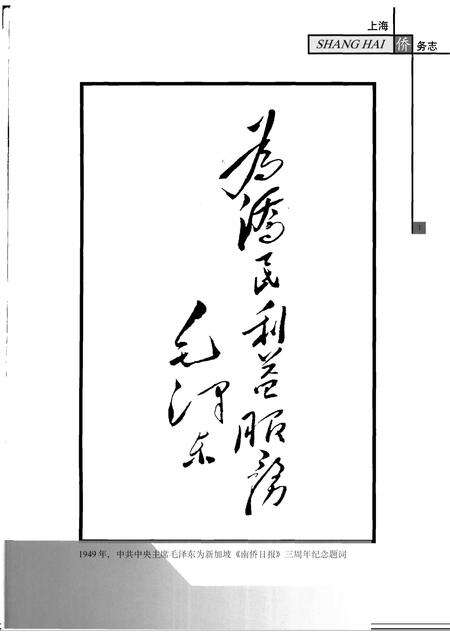 上海
SHANG HAI 侨 务志
1
為僑民利益服務
毛泽东
1949年，中共中央主席毛泽东为新加坡《南侨日报》三周年纪念题词